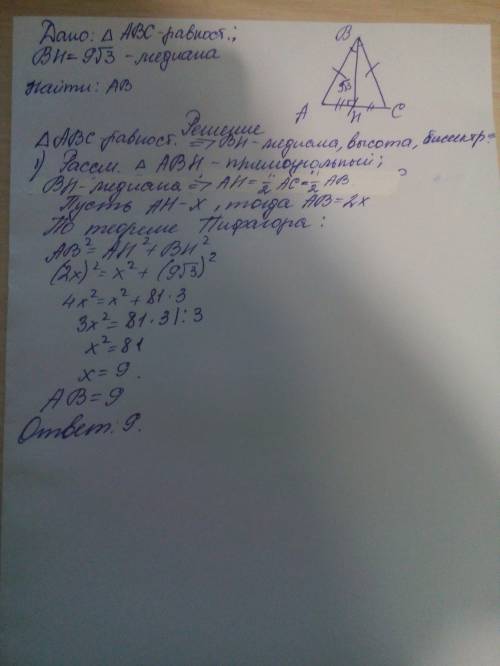 Дано: △ ABC-равност.;
BH=9√3 -медиана
Найти: AB
B
9√3
A
H
C
Решение
△ ABC-равност. => BH-медиана, высота, биссектр-
1) Рассм. △ ABH-прямоугольный;
BH-медиана => AH=1/2 AC=1/2 AB
Пусть AH-x, тогда AB=2x
По теореме Пифагора:
AB²=AH²+BH²
(2x)²=x²+(9√3)²
4x²=x²+81·3
3x²=81·3|:3
x²=81
x=9.
AB=9
Ответ: 9.